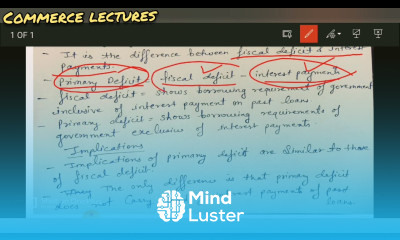 COMMERCE LECTURES
1 OF 1
- It is the difference between fiscal deficit & interest
payments.
- Primary Deficit = fiscal deficit - interest payments
- fiscal deficit = shows borrowing requirement of government
inclusive of interest payment on past loans
Primary deficit = shows borrowing requirements of
government exclusive of interest payments
Implications
- Implications of primary deficit are similar to those
of fiscal deficit.
The only difference is that primary deficit
does not carry payments of past
loans
Mind
Luster